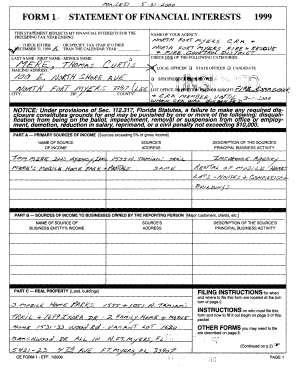 MAILED 5-31-2000
FORM 1 STATEMENT OF FINANCIAL INTERESTS 1999
THIS STATEMENT REFLECTS MY FINANCIAL INTERESTS FOR THE
PRECEDING TAX YEAR ENDING
CHECK EITHER OR SPECIFY TAX YEAR IF OTHER
DECEMBER 31, 1999 THAN THE CALENDAR YEAR
NAME OF YOUR AGENCY:
NORTH FORT MYERS CRA +
NORTH FORT MYERS FIRE + RESCUE
+ FIRE CONTROL DISTRICT
CHECK ONE OF THE FOLLOWING CATEGORIES
LAST NAME - FIRST NAME - MIDDLE NAME:
MERE, THOMAS CURTIS
LOCAL OFFICER STATE OFFICER CANDIDATE
100 E. NORTH SHORE AVE
NORTH FORT MYERS 33917 LEE
CITY COUNTY
LIST OFFICE OR POSITION
FIRE COMMISSIONER
NOTICE: Under provisions of Sec. 112.317, Florida Statutes, a failure to make any required dis-
closure constitutes grounds for and may be punished by one or more of the following: disqualifi-
cation from being on the ballot, impeachment, removal or suspension from office or employ-
ment, demotion, reduction in salary, reprimand, or a civil penalty not exceeding $10,000.
PART A -- PRIMARY SOURCES OF INCOME (Sources exceeding 5% of gross income)
NAME OF SOURCE OF INCOME
SOURCE'S ADDRESS
DESCRIPTION OF THE SOURCE'S PRINCIPAL BUSINESS ACTIVITY
TOM MERE INS. AGENCY, INC 1557 N. TAMIAMI TRAIL INSURANCE AGENCY
MERE'S MOBILE HOME PARK SAME RENTAL OF MOBILE HOME
LOTS - HOUSES + COMMERCIAL
BUILDINGS
PART B -- SOURCES OF INCOME TO BUSINESSES OWNED BY THE REPORTING PERSON (Major customers, clients, etc.)
NAME OF SOURCE OF BUSINESS ENTITY'S INCOME
SOURCE'S ADDRESS
DESCRIPTION OF THE SOURCE'S PRINCIPAL BUSINESS ACTIVITY
PART C -- REAL PROPERTY (Land, buildings)
2 MOBILE HOME PARKS 1557 + 1051 N. TAMIAMI
TRAIL + 1699 DR - 2 FAMILY HOME + MOBILE
HOME 1531-33 WOOD RD - VACANT LOT 1620
BEACHWOOD DR ALL IN N. FT. MYERS, FL
5421-23 4TH AVE FT. MYERS FL 33907
FILING INSTRUCTIONS for when
and where to file this form are located at the bot-
tom of page 2.
INSTRUCTIONS on who must file this
form and how to fill it out begin on page 3 of this
packet.
OTHER FORMS you may need to file
are described on page 6.
(Continued on p.2)
CE FORM 1 - EFF. 1/2000 PAGE 1